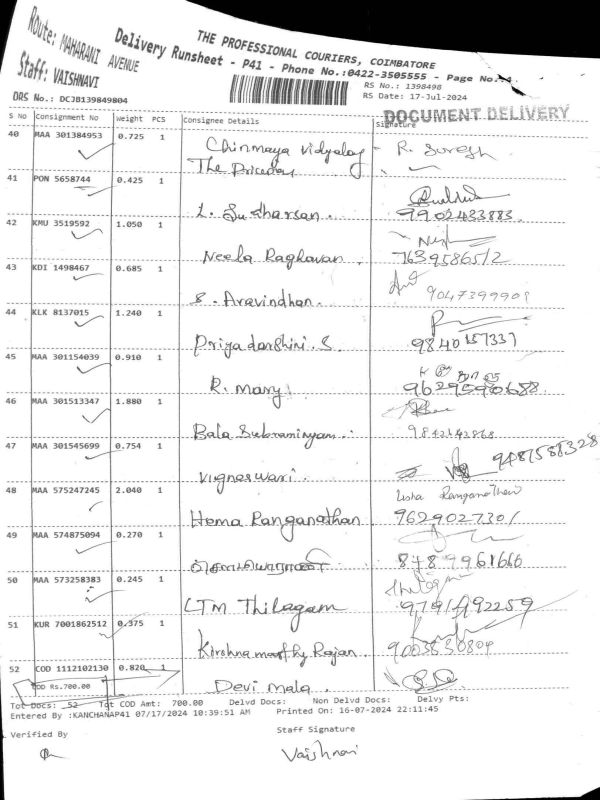 Route: MAHARANI AVENUE
Staff: VAISHNAVI
THE PROFESSIONAL COURIERS, COIMBATORE
Delivery Runsheet - P41 - Phone No.:0422-3505555 - Page No.:4
RS No.: 1398498
DRS No.: DCJB139849804
RS Date: 17-Jul-2024
DOCUMENT DELIVERY
S No Consignment No Weight PCS Consignee Details Signature
40 MAA 301384953 0.725 1
Chinmaya Vidyalay R. Suresh
The
41 PON 5658744 0.425 1
L. Sudharsan. 9902433883.
42 KMU 3519592 1.050 1
Neela Raghavan. 7639586512
43 KDI 1498467 0.685 1
S. Aravindhan. 9047399909
44 KLK 8137015 1.240 1
Priyadarshini. S. 9840157337
45 MAA 301154039 0.910 1
R. Mary 9629590688
46 MAA 301513347 1.880 1
Bala Subramniyam. 9842142868
47 MAA 301545699 0.754 1
Vigneswari. 9487588328
48 MAA 575247245 2.040 1 Usha Ranganathan
Hema Ranganathan 9629027301
49 MAA 574875094 0.270 1
8489961666
50 MAA 573258383 0.245 1
LTM Thilagam 9791492259
51 KUR 7001862512 0.375 1
Kirshnamoorthy Rajan 9003630804
52 COD 1112102130 0.820 1
COD Rs.700.00
Devi mala.
Tot Docs: 52 Tot COD Amt: 700.00 Delvd Docs: Non Delvd Docs: Delvy Pts:
Entered By :KANCHANAP41 07/17/2024 10:39:51 AM Printed On: 16-07-2024 22:11:45
Verified By Staff Signature
Vaishnavi